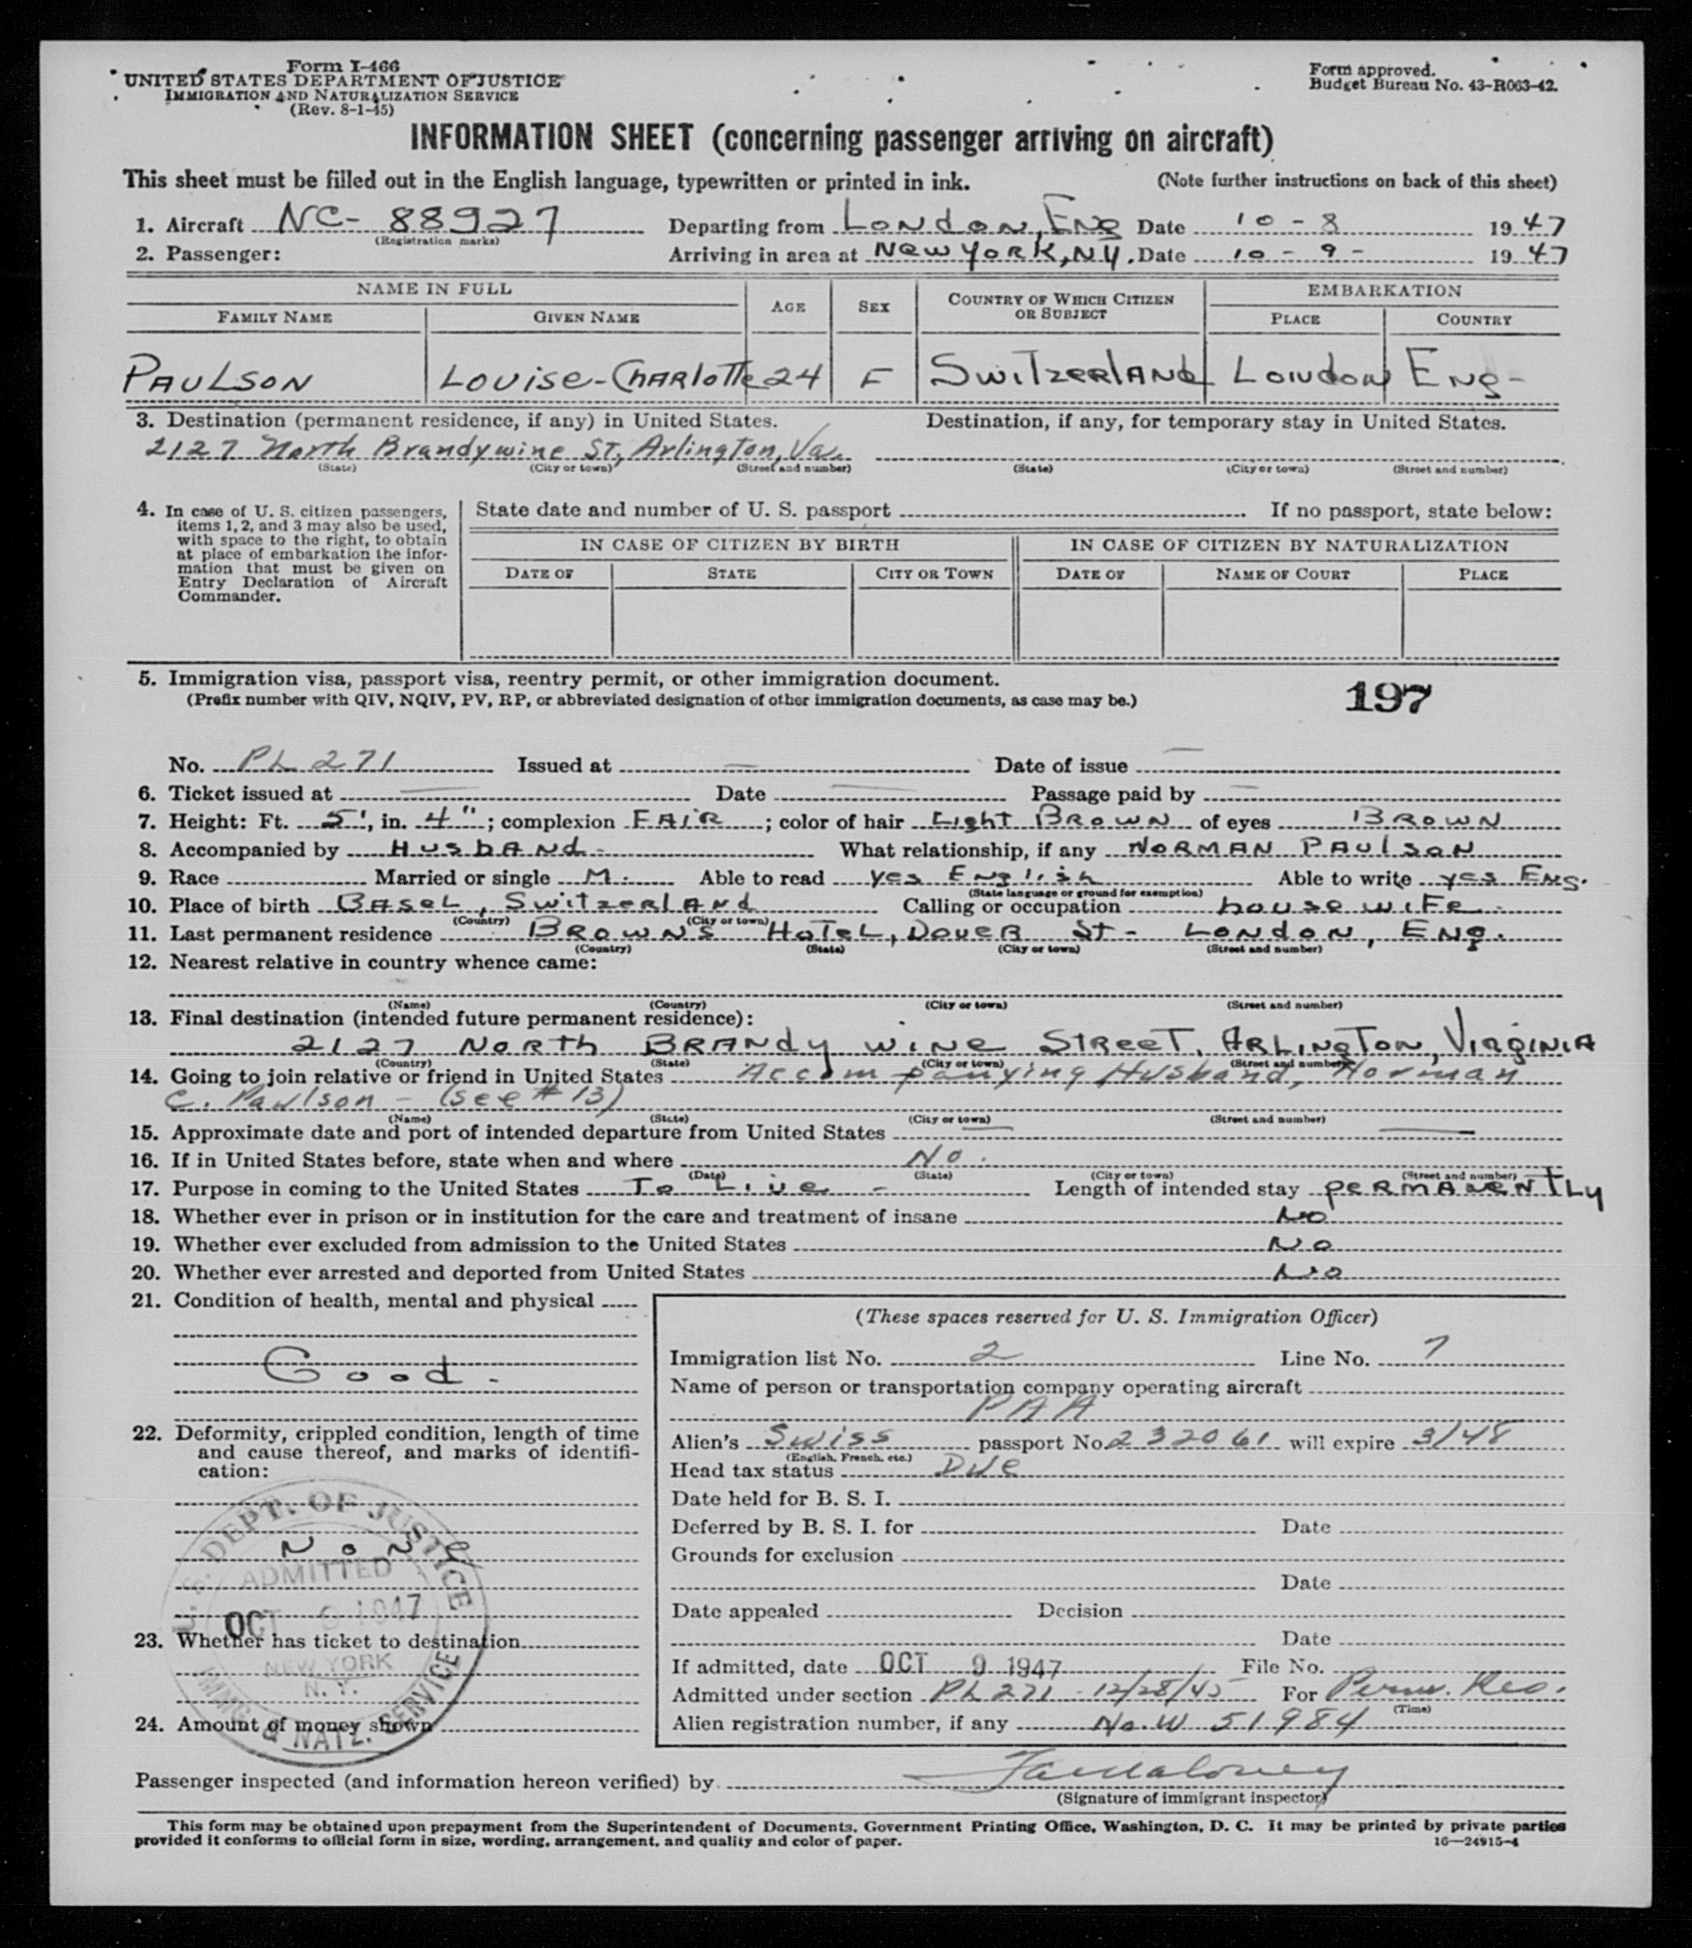 Form I-466
UNITED STATES DEPARTMENT OF JUSTICE
IMMIGRATION AND NATURALIZATION SERVICE
(Rev. 8-1-45)
Form approved.
Budget Bureau No. 43-R063-42.
INFORMATION SHEET (concerning passenger arriving on aircraft)
This sheet must be filled out in the English language, typewritten or printed in ink. (Note further instructions on back of this sheet)
1. Aircraft NC-88927 Departing from London, Eng Date 10-8 1947
(Registration marks)
2. Passenger: Arriving in area at New York, NY. Date 10-9- 1947
NAME IN FULL AGE SEX COUNTRY OF WHICH CITIZEN OR SUBJECT EMBARKATION
FAMILY NAME GIVEN NAME PLACE COUNTRY
PAULSON Louise-Charlotte 24 F Switzerland London Eng-
3. Destination (permanent residence, if any) in United States. Destination, if any, for temporary stay in United States.
2127 North Brandywine St, Arlington, Va.
(State) (City or town) (Street and number) (State) (City or town) (Street and number)
4. In case of U. S. citizen passengers, items 1, 2, and 3 may also be used, with space to the right, to obtain at place of embarkation the information that must be given on Entry Declaration of Aircraft Commander.
State date and number of U. S. passport If no passport, state below:
IN CASE OF CITIZEN BY BIRTH IN CASE OF CITIZEN BY NATURALIZATION
DATE OF STATE CITY OR TOWN DATE OF NAME OF COURT PLACE
5. Immigration visa, passport visa, reentry permit, or other immigration document.
(Prefix number with QIV, NQIV, PV, RP, or abbreviated designation of other immigration documents, as case may be.)
197
No. PL 271 Issued at — Date of issue —
6. Ticket issued at — Date — Passage paid by —
7. Height: Ft. 5', in. 4"; complexion FAIR; color of hair Light Brown of eyes Brown
8. Accompanied by Husband- What relationship, if any NORMAN PAULSON
9. Race Married or single M. Able to read yes English Able to write yes Eng.
(State language or ground for exemption)
10. Place of birth Basel, Switzerland Calling or occupation housewife.
(Country) (City or town)
11. Last permanent residence Browns Hotel, Dover St- London, Eng.
(Country) (State) (City or town) (Street and number)
12. Nearest relative in country whence came:
(Name) (Country) (City or town) (Street and number)
13. Final destination (intended future permanent residence):
2127 North Brandywine Street, Arlington, Virginia
(Country) (State) (City or town) (Street and number)
14. Going to join relative or friend in United States Accompanying Husband, Norman
C. Paulson - (see #13)
(Name) (State) (City or town) (Street and number)
15. Approximate date and port of intended departure from United States —
16. If in United States before, state when and where No.
(Date) (State) (City or town) (Street and number)
17. Purpose in coming to the United States To Live - Length of intended stay permanently
18. Whether ever in prison or in institution for the care and treatment of insane No
19. Whether ever excluded from admission to the United States No
20. Whether ever arrested and deported from United States No
21. Condition of health, mental and physical
Good -
22. Deformity, crippled condition, length of time and cause thereof, and marks of identification:
None
U. S. DEPT. OF JUSTICE
ADMITTED
OCT 9 1947
NEW YORK
N. Y.
IMMG & NATZ. SERVICE
23. Whether has ticket to destination
24. Amount of money shown
(These spaces reserved for U. S. Immigration Officer)
Immigration list No. 2 Line No. 7
Name of person or transportation company operating aircraft
PAA
Alien's Swiss passport No. 232061 will expire 3/48
(English, French, etc.)
Head tax status Due
Date held for B. S. I.
Deferred by B. S. I. for Date
Grounds for exclusion
Date
Date appealed Decision
Date
If admitted, date OCT 9 1947 File No.
Admitted under section PL 271 - 12/28/45 For Perm. Res.
(Time)
Alien registration number, if any No. W 51984
Passenger inspected (and information hereon verified) by
(Signature of immigrant inspector)
This form may be obtained upon prepayment from the Superintendent of Documents, Government Printing Office, Washington, D. C. It may be printed by private parties
provided it conforms to official form in size, wording, arrangement, and quality and color of paper. 16—24915-4